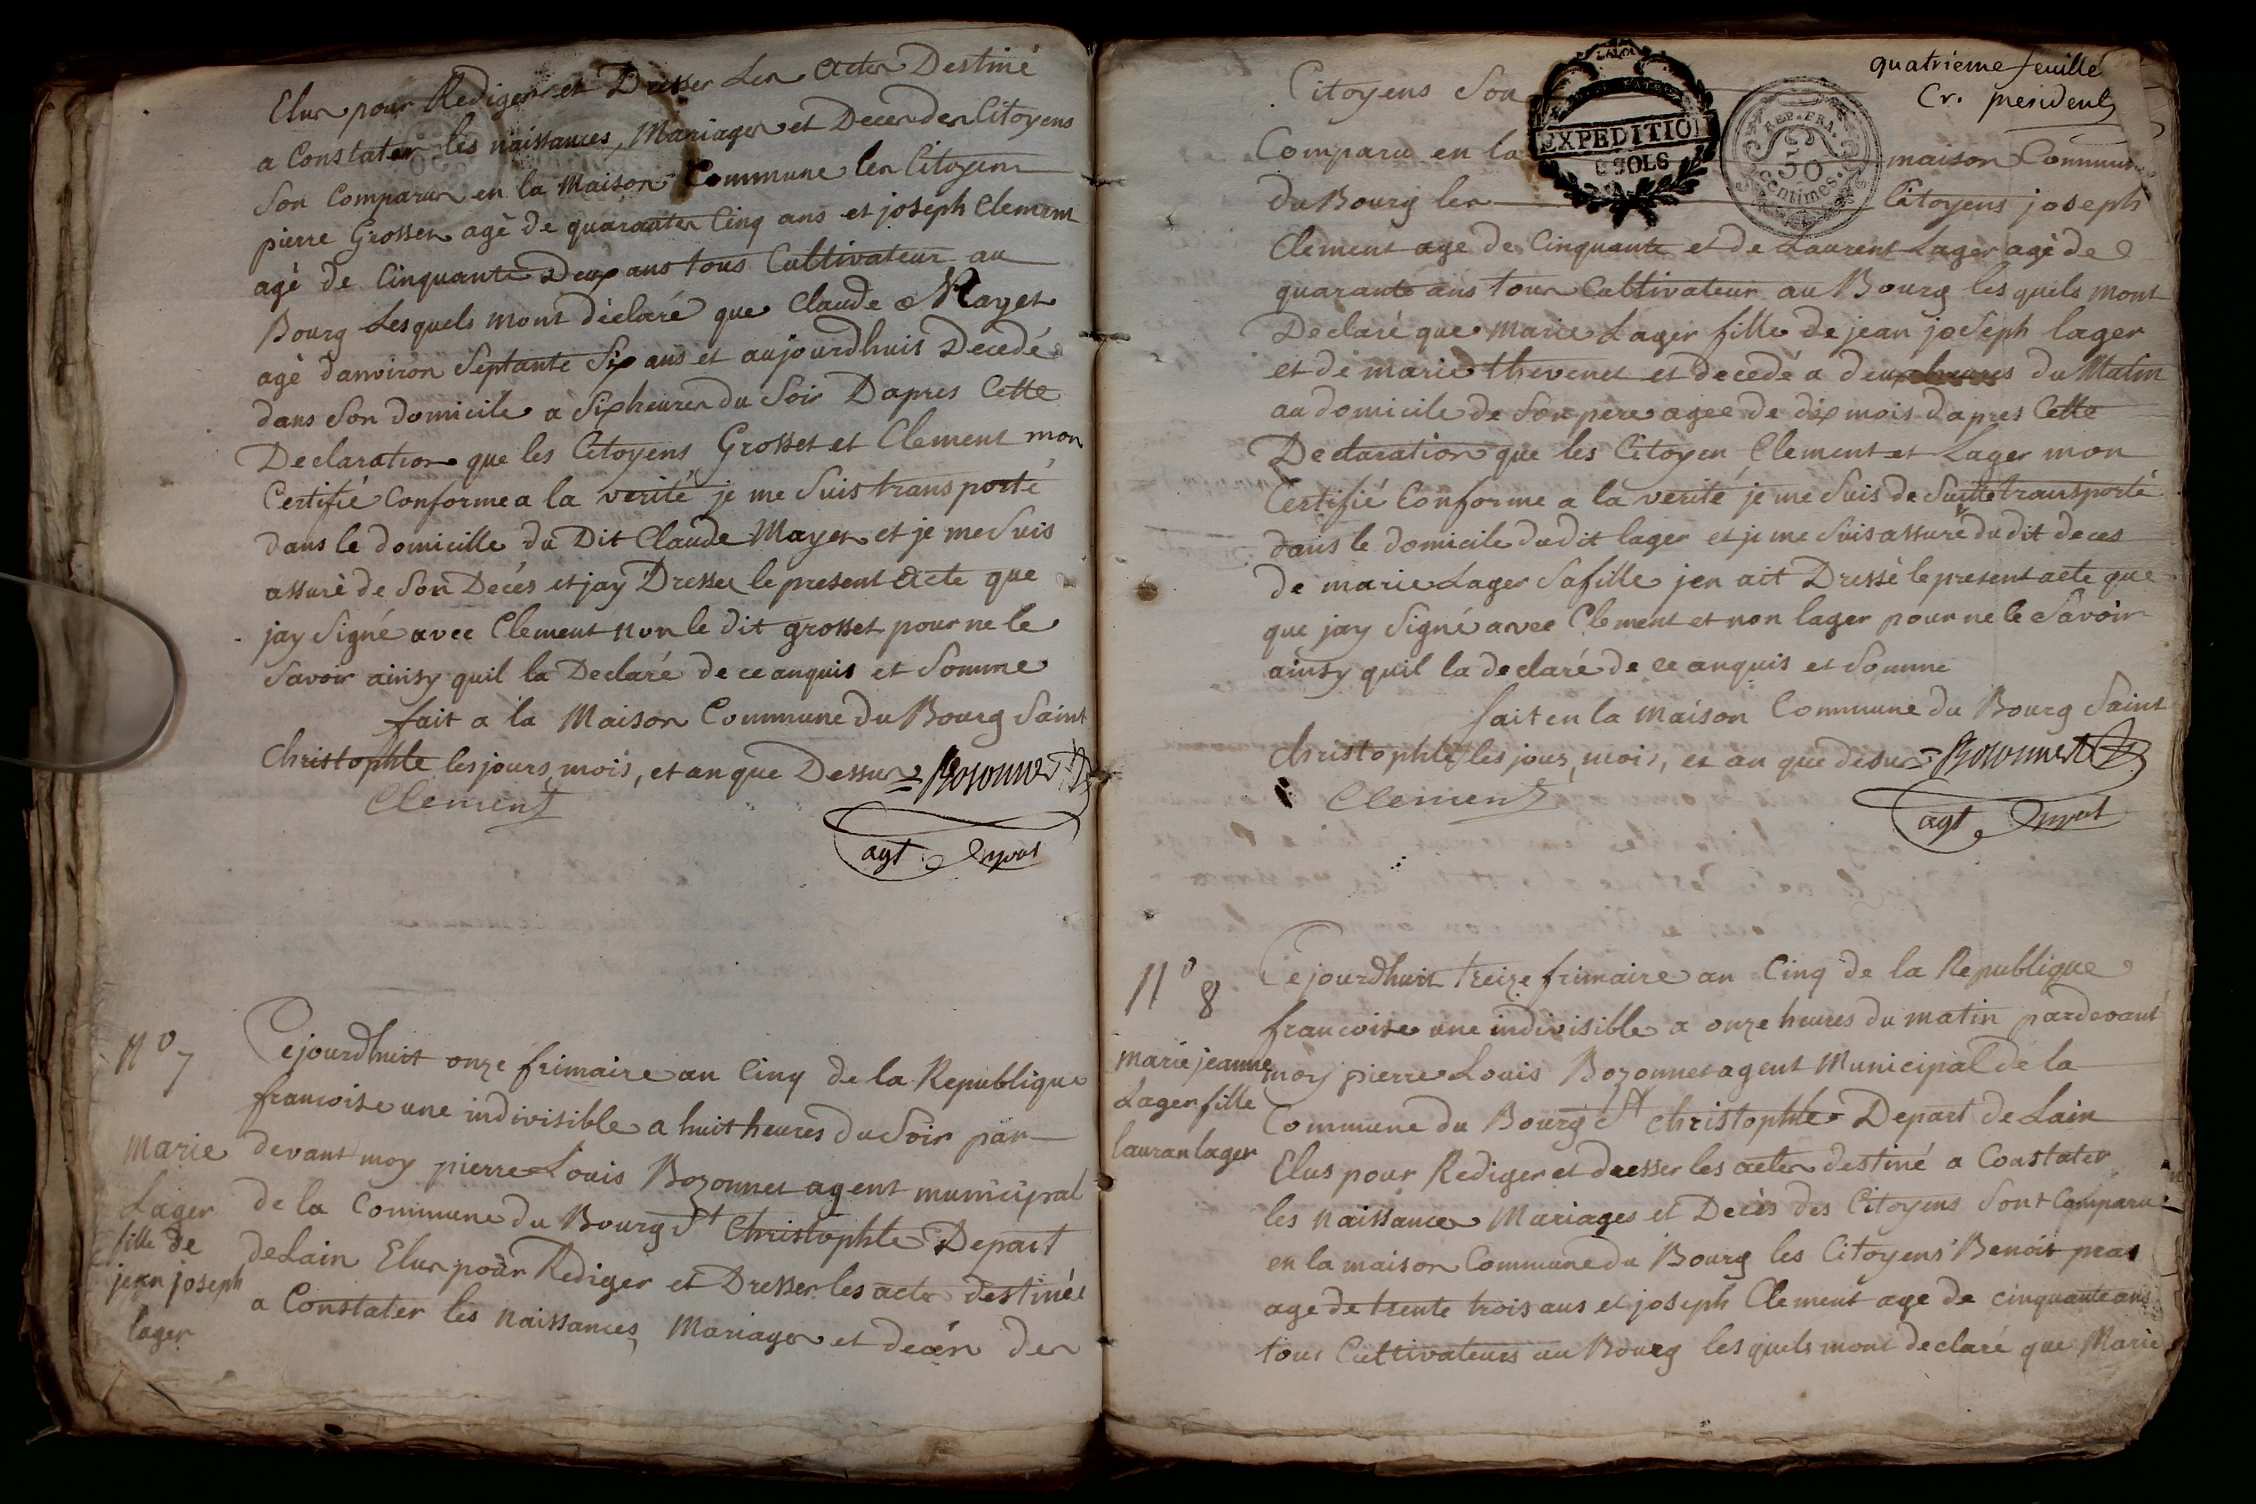 Elus pour Rediger et Dresser Les Actes Destiné
a Constater les naissances, Mariages et Deces des Citoyens
Son Comparus en la Maison Commune les Citoyens
pierre Grosset agé de quarante Cinq ans et joseph Clement
agé de Cinquante Deux ans tous Cultivateur au
Bourg Lesquels mont déclaré que Claude Mayet
agé danviron Septante Six ans et aujourdhuis Decedé
dans Son domicile a Six heures du Soir Dapres Cette
Declaration que les Citoyens Grosset et Clement mon
Certifié Conforme a la verité je me Suis transporté
dans le domicille du Dit Claude Mayet et je me Suis
assuré de Son Decés et jay Dresser le present Acte que
jay Signé avec Clement non le dit grosset pour ne le
Savoir ainsy quil la Declaré de ce anquis et Somme
fait a la Maison Commune du Bourg Saint
Christophle les jours, mois, et an que Dessus = Bozonnet
Clement
agt
N° 7
Marie
Lager
fille de
jean joseph
lager
Cejourdhuit onze frimaire an Cinq de la Republique
francoise une indivisible a huit heures du Soir par
devant moy pierre Louis Bozonnet agent municipal
de la Commune du Bourg St Christophle Depart
de Lain Elus pour Rediger et Dresser les acte destinée
a Constater les naissances, Mariages et deces des
quatrieme feuille
Cr. president
EXPEDITION
SOLS
REP. FRA.
50
centimes.
Citoyens Son
Comparu en la maison Commune
du Bourg les Citoyens joseph
Clement age de Cinquante et de Laurent Lager agé de
quarante ans tous Cultivateur au Bourg les quels mont
Declaré que Marie Lager fille de jean joseph lager
et de marie thevenet et decedé a deux heures du Matin
au domicile de Son pere agee de dix mois dapres Cette
Declaration que les Citoyen Clement et Lager mon
Certifié Conforme a la verité je me Suis de Suitte transporté
dans le domicile dudit lager et je me Suis assuré du dit deces
de marie Lager Safille jen ait Dressé le present acte que
que jay Signé avec Clement et non lager pour ne le Savoir
ainsy quil la declaré de ce anquis et Somme
fait en la maison Commune du Bourg Saint
Christophle les jour, mois, et an que desus = Bozonnet
Clement
agt
N° 8
marie jeanne
Lager fille
lauran lager
Cejourdhuit treize frimaire an Cinq de la Republique
francoise une indivisible a onze heures du matin pardevant
moy pierre Louis Bozonnet agent Municipal de la
Commune du Bourg St Christophle Depart de Lain
Elus pour Rediger et dresser les actes destiné a Constater
les naissances Mariages et Decés des Citoyens Sont Comparu
en la maison Commune du Bourg les Citoyens Benoit pras
age de trente trois ans et joseph Clement age de cinquante ans
tous Cultivateurs au Bourg les quels mont declaré que Marie